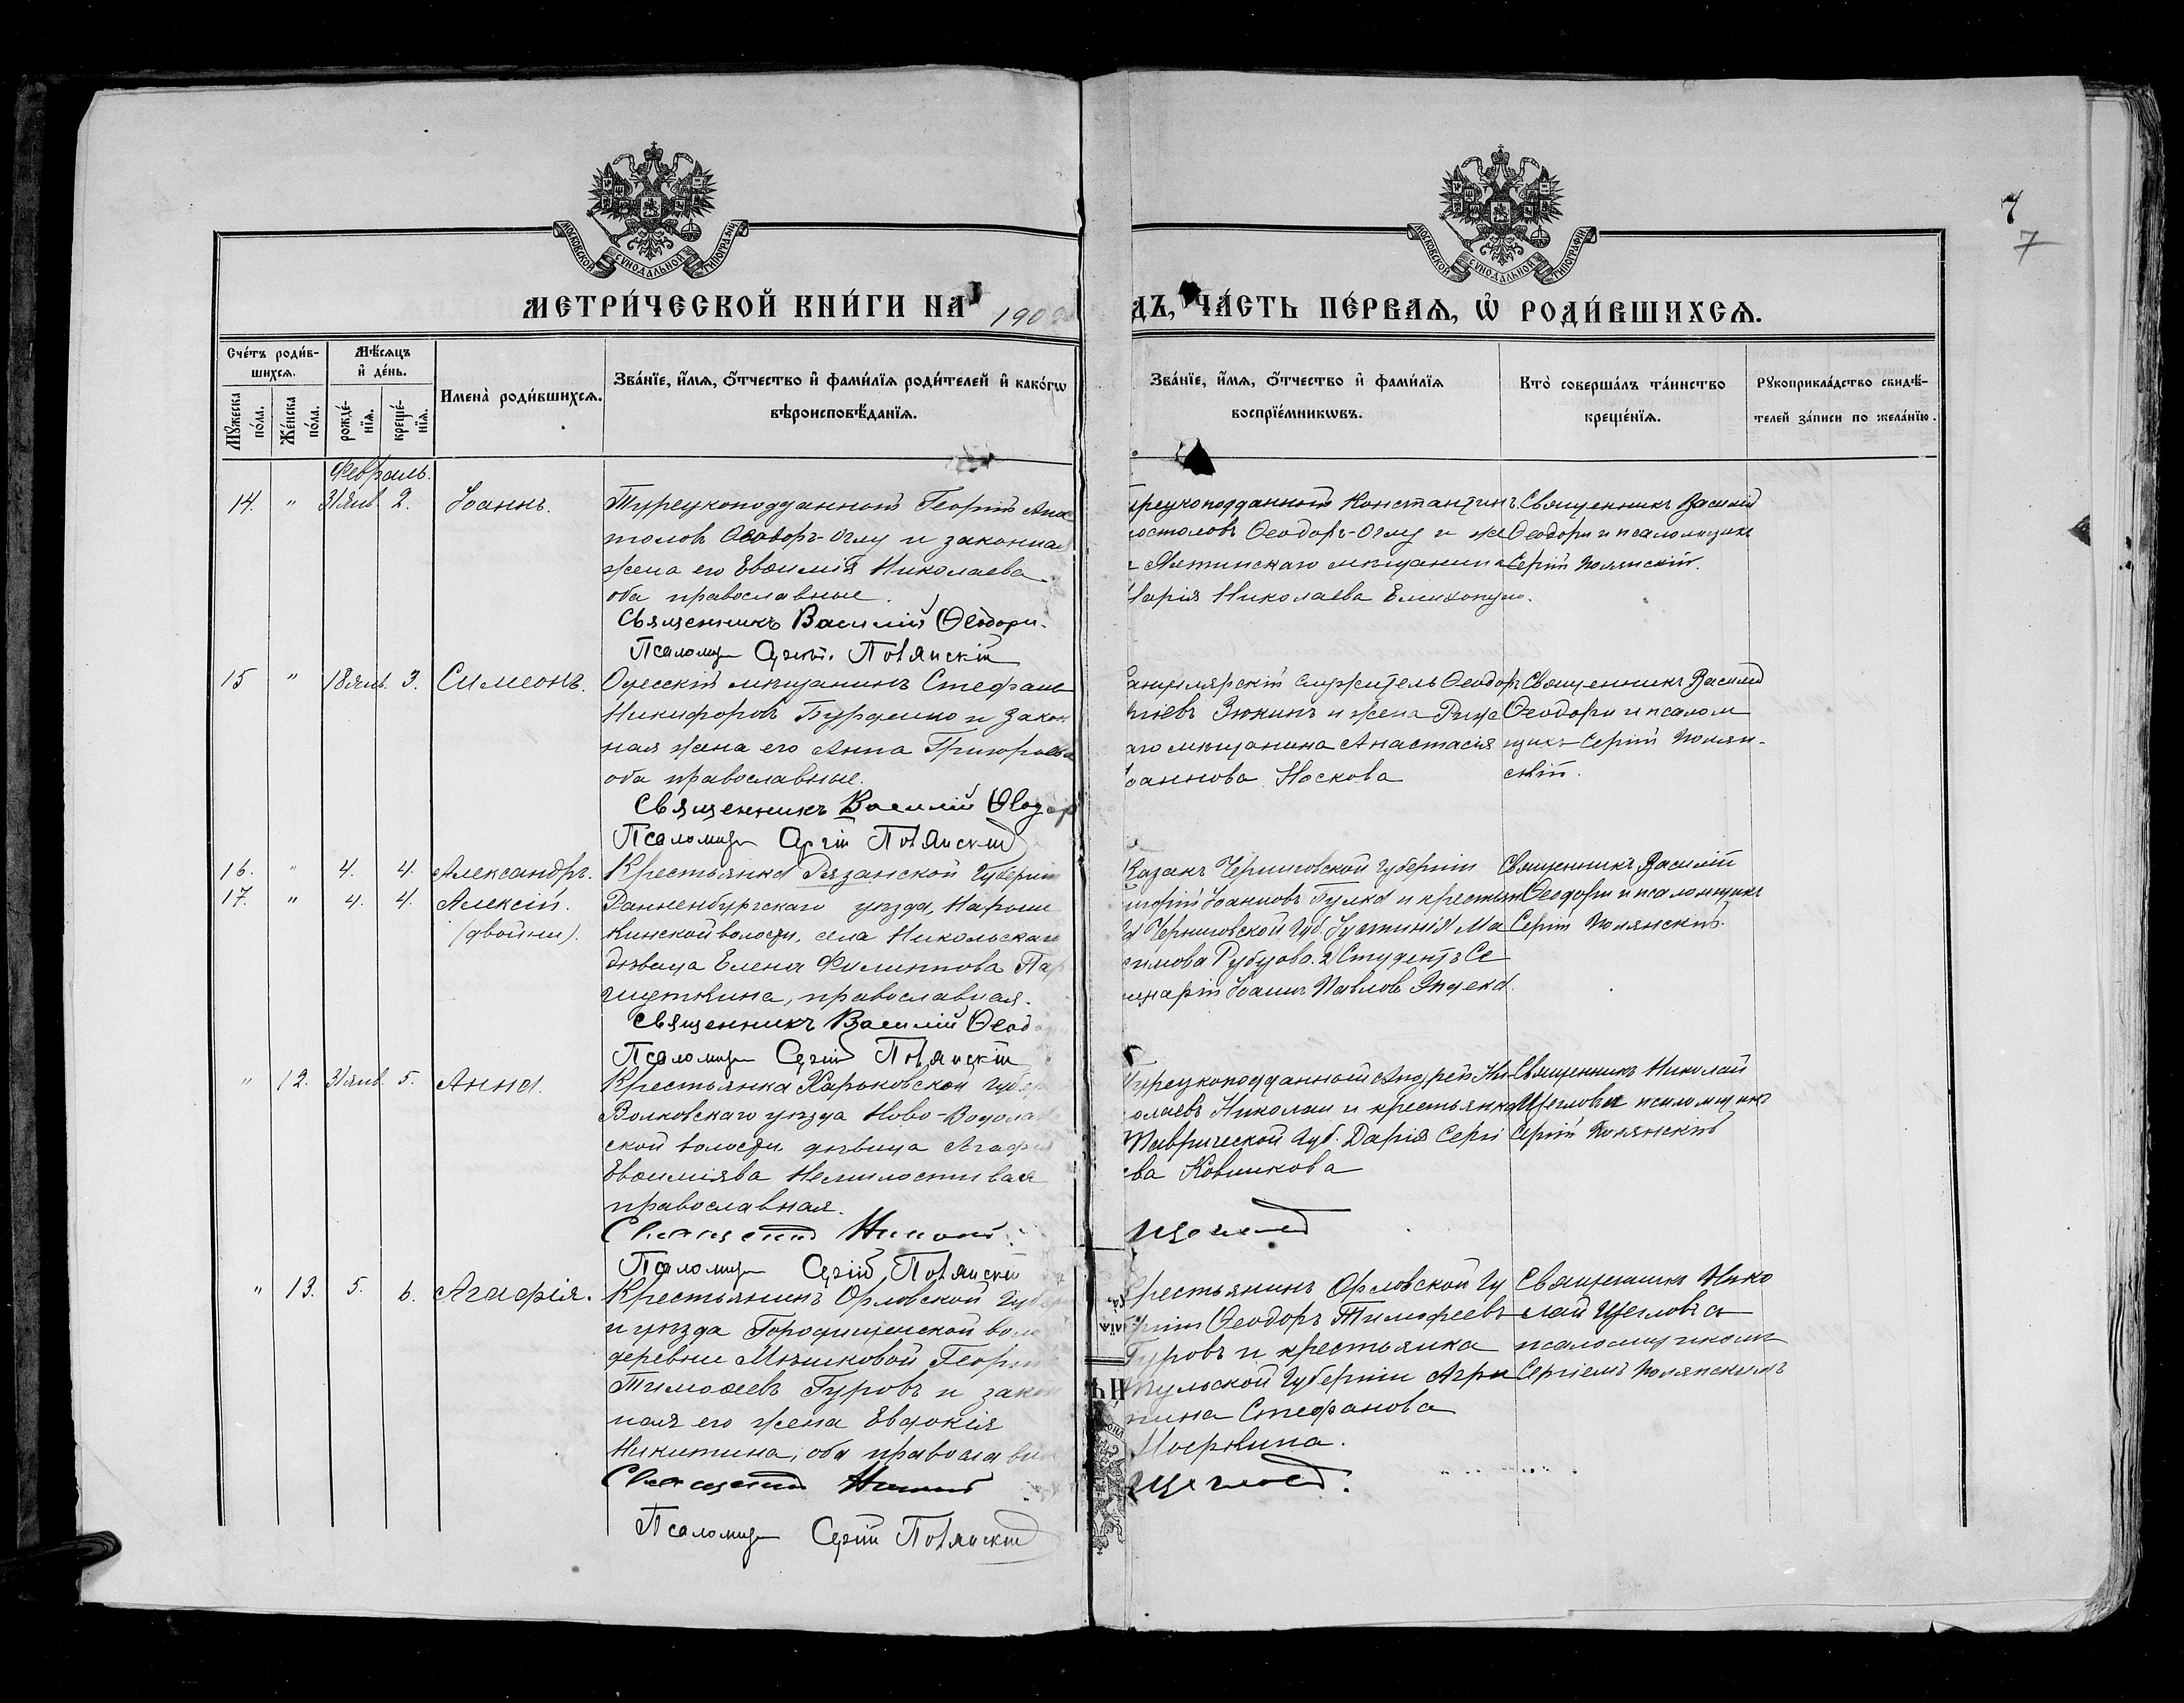 7
7
МОСКОВСКОЙ СѴНОДАЛЬНОЙ ТИПОГРАФІИ
МОСКОВСКОЙ СѴНОДАЛЬНОЙ ТИПОГРАФІИ
МЕТРИ́ЧЕСКОЙ КНИ́ГИ НА 190
ДЪ, ЧА́СТЬ ПЕ́РВАѦ, Ѡ҆ РОДИ́ВШИХСѦ.
Сче́тъ роди́в-
шихсѧ.
Мꙋ́жеска по́ла.
Же́нска по́ла.
Мѣ́сѧцъ
и҆ де́нь.
рожде́-
нїѧ.
креще́-
нїѧ.
Имена̀ роди́вшихсѧ.
Зва́нїе, и҆́мѧ, ѻ҆́тчество и҆ фами́лїѧ роди́телей и҆ како́гѡ
вѣроисповѣ́данїѧ.
Зва́нїе, и҆́мѧ, ѻ҆́тчество и҆ фами́лїѧ
воспрїе́мникѡвъ.
Кто̀ соверша́лъ та́инство
креще́нїѧ.
Рꙋкоприкла́дство свидѣ́-
телей за́писи по жела́нїю.
Февраль.
14. " 31 янв. 2. Іоаннъ.
Турецкоподданный Георгій Апос
толовъ Ѳеодоръ-Оглу и законная
жена его Евѳимія Николаева
оба православные.
Священникъ Василій Ѳеодори.
Псаломщ Сергій Полянскій
урецкоподданный Константинъ
постоловъ Ѳеодоръ-Оглу и же
Ялтинскаго мѣщанина
Марія Николаева
Священникъ Василій
Ѳеодори и псаломщикъ
Сергій Полянскій.
15 " 18 янв. 3. Симеонъ.
Одесскій мѣщанинъ Стефанъ
Никифоровъ Бурденко и закон
ная жена его Анна Григорьева
оба православные.
Священникъ Василій Ѳеодор
Псаломщ Сергій Полянскій
анцелярскій служитель Ѳеодоръ
Зюкинъ и жена
аго мѣщанина Анастасія
оаннова Носкова
Священникъ Василій
Ѳеодори и псалом
щикъ Сергій Полян-
скій.
16. " 4. 4. Александръ.
17. " 4. 4. Алексій.
(двойни).
Крестьянка Рязанской Губерніи
Ранненбургскаго уѣзда, Нарыш
кинской волости, села Никольскаго
дѣвица Елена Филиппова
православная.
Священникъ Василій Ѳеодо
Псаломщ Сергій Полянскій
Казакъ Черниговской губерніи
Іоанновъ Гулка и крестьян
Черниговской Губ. Іустинія Ма
симова Рубцова. 2) Студентъ Се
минаріи Іоаннъ Павловъ
Священникъ Василій
Ѳеодори и псаломщикъ
Сергій Полянскій.
" 12. 31 янв. 5. Анна.
Крестьянка Харьковской губер
Волковскаго уѣзда Ново-Водола
ской волости дѣвица Агафія
Евѳиміева Немилостивая
православная.
Священникъ Николай
Щегловъ
Псаломщ Сергій Полянскій
Турецкоподданный Андрей Ни
колаевъ Николаи и крестьянка
Таврической Губ. Дарія Серг
ева Ковшикова
Священникъ Николай
Щегловъ и псаломщикъ
Сергій Полянскій
" 13. 5. 6. Агафія.
Крестьянинъ Орловской Губер
и уѣзда Городищенской воло
деревни Мѣшковой Георгій
Тимоѳеевъ Гуровъ и закон
ная его жена Евдокія
Никитина, оба православн
Священникъ Николай
Щегловъ.
Псаломщ Сергій Полянскій
Крестьянинъ Орловской Гу
Ѳеодоръ Тимоѳеевъ
Гуровъ и крестьянка
Тульской Губерніи Агри
пина Стефанова
Священникъ Нико
лай Щегловъ съ
псаломщикомъ
Сергіемъ Полянскимъ